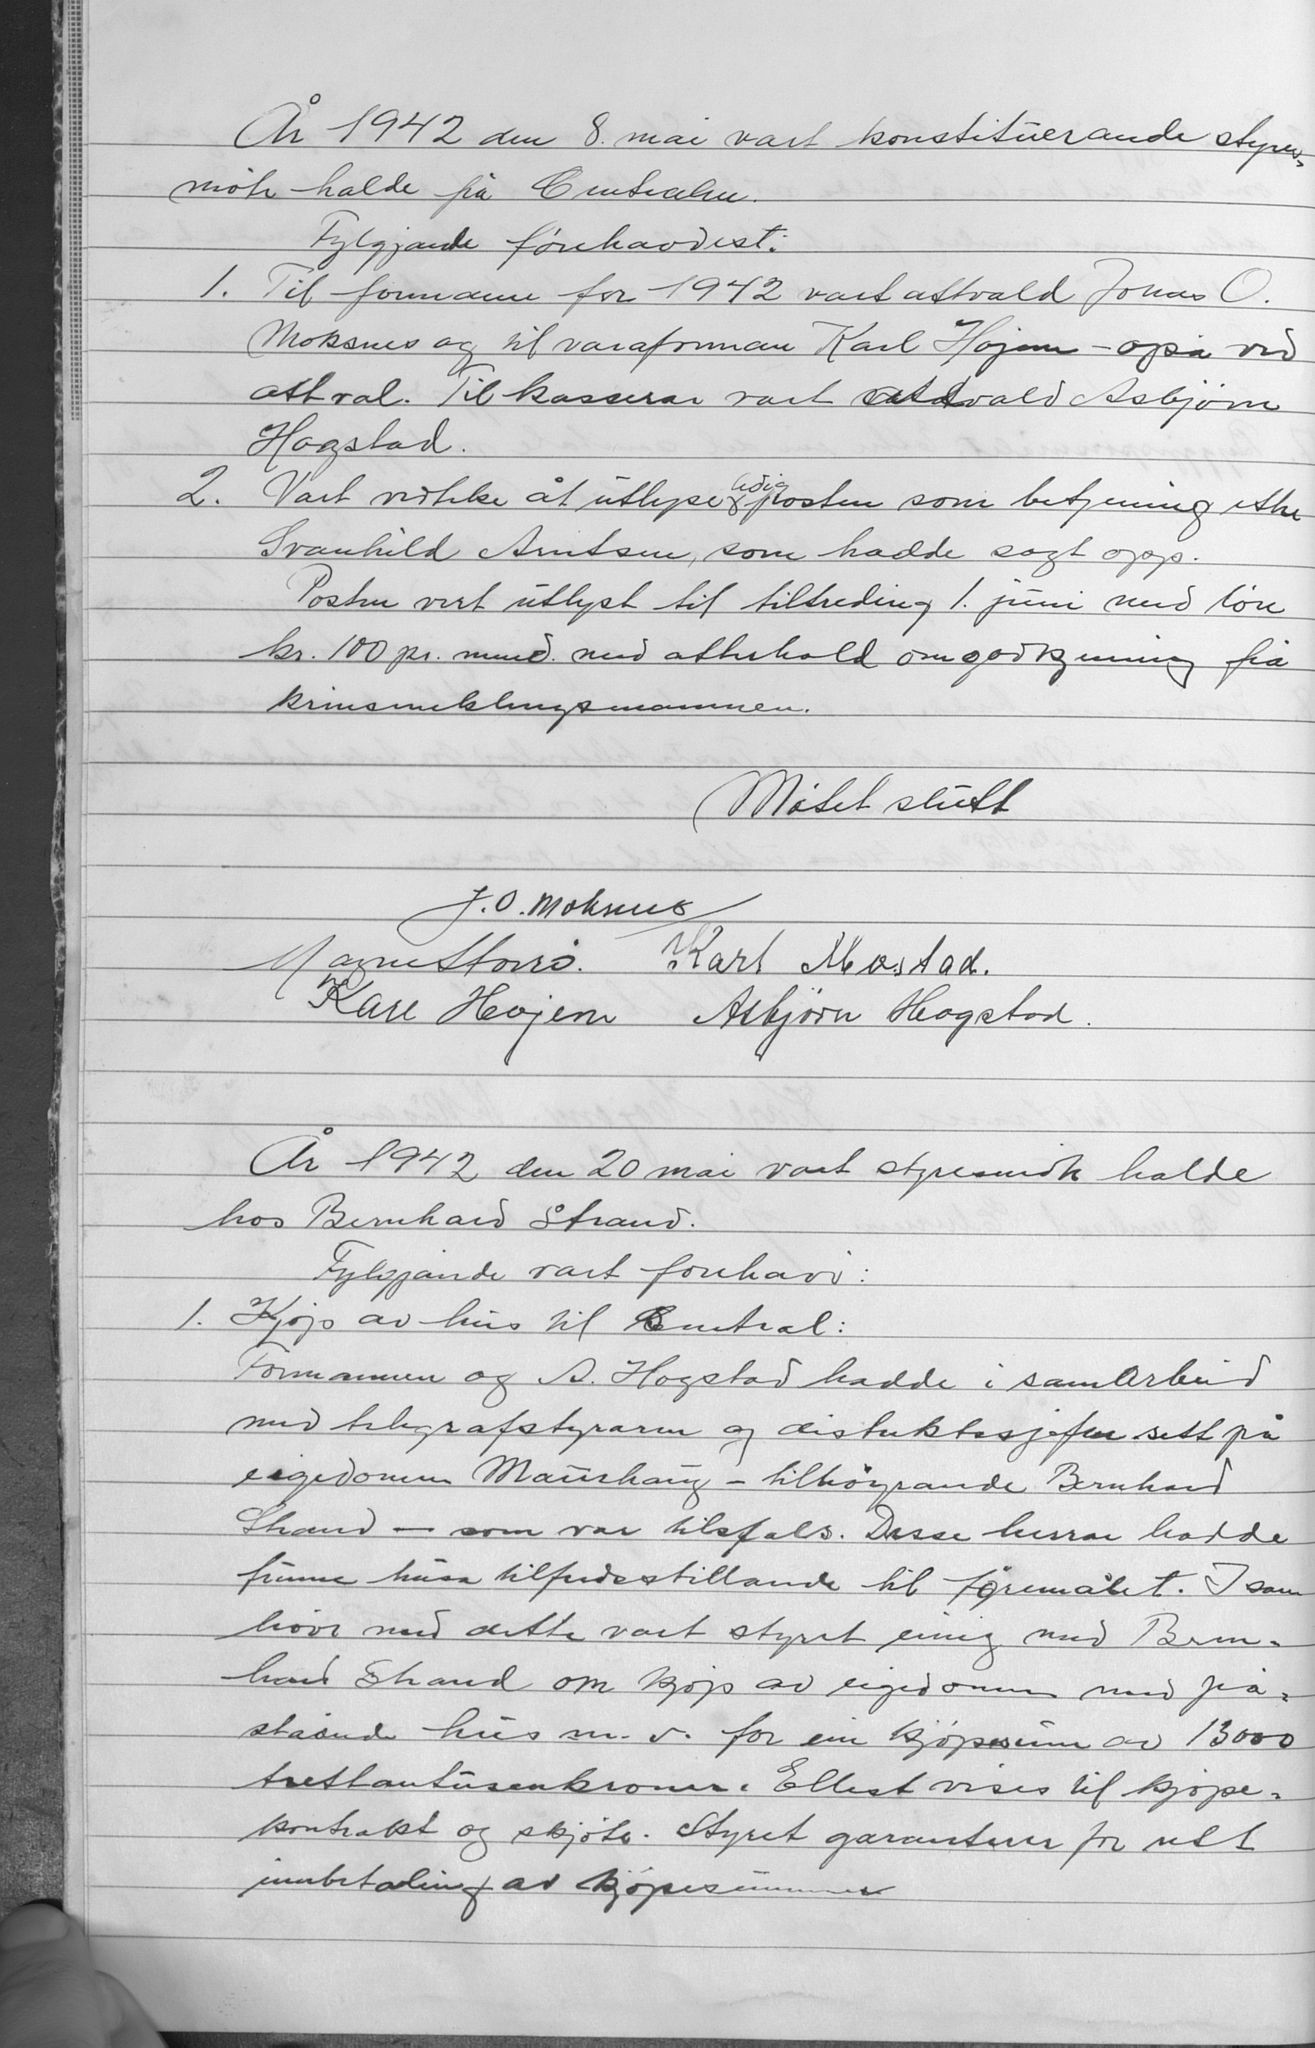 År 1942 den 8. mai vart konstituerande styres-
møte halde på Centralen.
Fylgjande fórehavdest:
1. Til formann for 1942 vart attvald Jonas O.
Moksnes og til varaformann Karl Højem – også ved
attval. Til kasserar vart attvald Asbjørn
Hogstad.
2. Vart vedteke åt utlyse ledig posten som betjening etter
Svanhild Arntsen, som hadde sagt opp.
Posten vert utlyst til tiltreding 1. juni med løn
kr. 100 pr. mnd. med atterhald om godkjenning frå
krinsmeklingsmannen.
Møtet slutt
J. O. Moksnes
Magne Storrø. Karl Mostad.
Kare Højem Asbjörn Hogstad.
År 1942 den 20 mai vart styresmøte halde
hos Bernhard Strand.
Fylgjande vart forehavd:
1. Kjøp av hus til Central:
Formannen og A. Hogstad hadde i samarbeid
med telegrafstyraren og distriktssjefen sett på
eigedomen Maurhaug – tilhøyrande Bernhard
Strand – som var tilsfals. Disse herrar hadde
funne husa tilfredsstillande til føremålet. I sam
høve med dette vart styret einig med Bern-
hard Strand om kjøp av eigedomen med på-
ståande hus m. v. for ein kjøpesum av 13000
trettantusenkroner. Ellest vises til kjøpe-
kontrakt og skjøte. Styret garanterer for rett
innbetaling av kjøpesummen